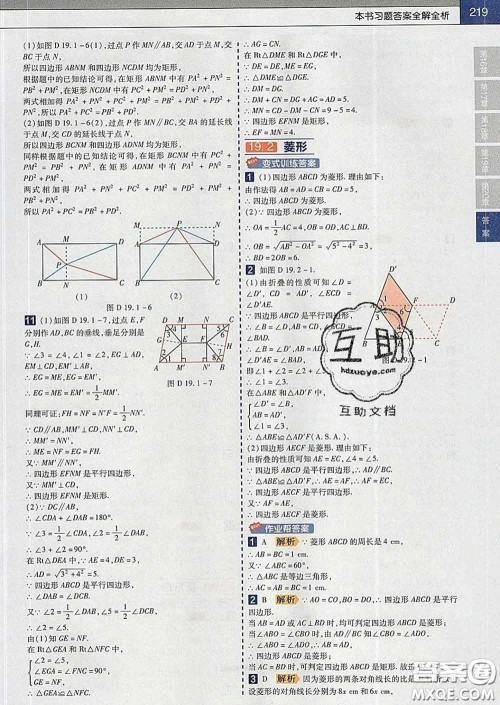 本书习题答案全解全析 219
(1)如图D 19.1-6(1),过点P作MN∥AB,交AD于点M,交BC于点N.
所以四边形ABNM和四边形NCDM均为矩形.
根据题中的已知结论可得,在矩形ABNM中有PA²+PN²=PB²+PM²,在矩形NCDM中有PC²+PM²=PD²+PN²,
两式相加得PA²+PN²+PC²+PM²=PB²+PM²+PD²+PN²,
所以PA²+PC²=PB²+PD².
(2)如图D 19.1-6(2),过点P作MN∥BC,交BA的延长线于点M,交CD的延长线于点N,
所以四边形BCNM和四边形ADNM均为矩形.
同样根据题中的已知结论可得,在矩形BCNM中有PC²+PM²=PB²+PN²,在矩形ADNM中有PA²+PN²=PD²+PM²,
两式相加得PA²+PN²+PC²+PM²=PD²+PM²+PB²+PN²,
所以PA²+PC²=PB²+PD².
(1) (2)
图D 19.1-6
11 (1)如图D 19.1-7,过点E,F分别作AD,BC的垂线,垂足分别是G,H.
∵∠3=∠4,∠1=∠2,
图D 19.1-7
∴EG=ME,EG=EM′.
∴EG=ME=EM′=1/2 MM′.
同理可证:FH=NF=N′F=1/2 NN′.
∵CD∥AB,MM′⊥CD,NN′⊥CD,
∴MM′=NN′.
∴ME=NF=EG=FH.
又∵MM′∥NN′,MM′⊥CD,
∴四边形EFNM是平行四边形.
∴四边形EFNM是矩形.
(2)∵DC∥AB,
∴∠CDA+∠DAB=180°.
∵∠3=1/2∠CDA,∠2=1/2∠DAB,
∴∠3+∠2=90°.
在Rt△DEA中,∵AE=4,DE=3,
∴AD=√(3²+4²)=5.
∵四边形ABCD是平行四边形,
∴∠DAB=∠DCB.
又∵∠2=1/2∠DAB,∠5=1/2∠DCB,
∴∠2=∠5.
由(1)知GE=NF.
在Rt△GEA和Rt△NFC中,
∠2=∠5,
∠EGA=∠FNC=90°,
GE=NF,
∴△GEA≌△NFC.
∴AG=CN.
在Rt△DME和Rt△DGE中,
∵DE=DE,ME=EG,
∴△DME≌△DGE.
∴DM=DG.
∴DM+CN=DG+AG=AD=5.
∵四边形EFNM是矩形,
∴EF=MN=4.
19.2 菱形
变式训练答案
1 (1)四边形ABCD为菱形.理由如下:
由作法得AB=AD=CB=CD=5,
∴四边形ABCD为菱形.
(2)∵四边形ABCD为菱形,
∴OA=1/2 AC=4,OB=OD,AC⊥BD.
∴OB=√(AB²-OA²)=√(5²-4²)=3.
∴BD=2OB=6.
2 如图D 19.2-1.
(1)由折叠的性质可知∠D=∠D′,CD=AD′,∠C=∠D′AE.
∵四边形ABCD是平行四边形,
∴∠B=∠D,AB=CD,
∠D′AE=∠BAD,
即∠1+∠2=∠2+∠3.
∴∠1=∠3.
在△ABE和△AD′F中,
∠D′=∠B,
AB=AD′,
∠1=∠3,
∴△ABE≌△AD′F(A.S.A.).
(2)四边形AECF是菱形.理由如下:
由折叠的性质可知AE=EC,∠4=∠5.
∵四边形ABCD是平行四边形,∴AD∥BC.
∵△ABE≌△AD′F,∴AE=AF.
∵AE=EC,∴AF=EC.
又∵AF=AE,
∴四边形AECF是菱形.
作业帮答案
1 A 解析 ∵菱形ABCD的周长是4 cm,
∴AB=BC=1 cm.
∴△ABC是等边三角形,
∴AC=AB=BC=1 cm.
2 B 解析 ∵AO=CO,BO=DO,∴四边形ABCD是平行四边形.
当AB=AD或AC⊥BD时,均可判定四边形ABCD是菱形;
当∠ABO=∠CBO时,由AD∥BC知∠CBO=∠ADO,
∴∠ABO=∠ADO.
∴AB=AD.
∴四边形ABCD是菱形;
当AC=BD时,可判定四边形ABCD是矩形.
3 D 解析 因为菱形的两条对角线的比是
设菱形的对角线长分别为8x cm和6x cm,
互助
hdzuoye.com
互助文档
答案圈
MXQE.COM
第16章 第17章 第18章 第19章 第20章 答案